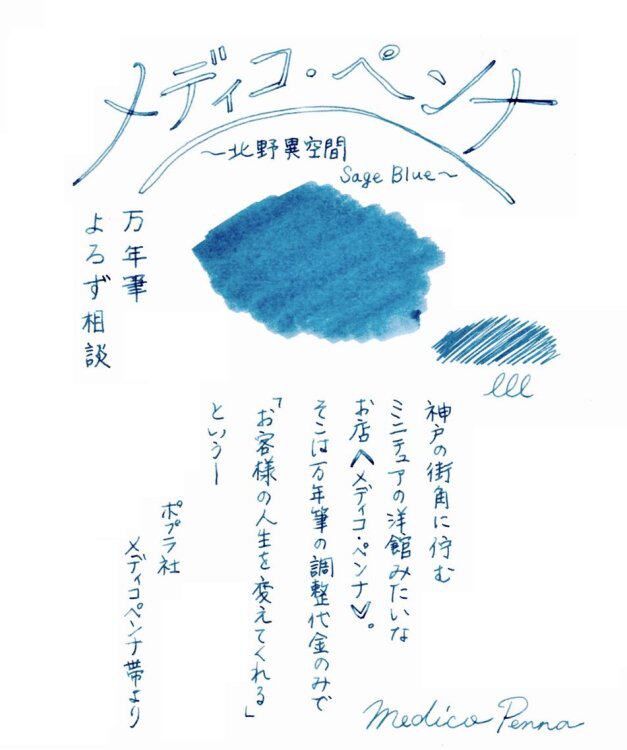 メディコ・ペンナ
～北野異空間
Sage Blue～
万年筆
よろず相談
神戸の街角に佇む
ミニチュアの洋館みたいな
お店〈メディコ・ペンナ〉。
そこは万年筆の調整代金のみで
「お客様の人生を変えてくれる」
という―
ポプラ社
メディコペンナ帯より
Medico Penna